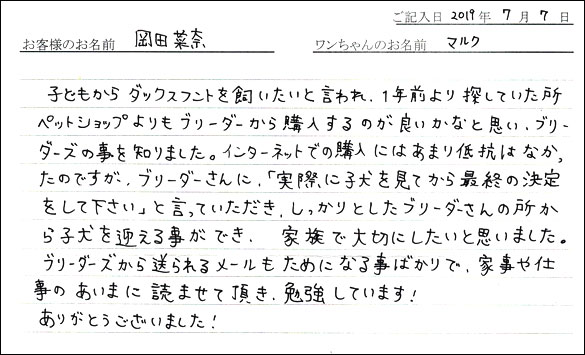 ご記入日 2019年 7月 7日
お客様のお名前 岡田菜奈 ワンちゃんのお名前 マルク
子どもから ダックスフントを飼いたいと言われ、1年前より 探していた所
ペットショップよりもブリーダーから購入するのが良いかなと思い、ブリー
ダーズの事を知りました。インターネットでの購入にはあまり低抗はなかっ
たのですが、ブリーダーさんに、「実際に子犬を見てから最終の決定
をして下さい」と言っていただき、しっかりとしたブリーダーさんの所か
ら子犬を迎える事ができ、 家族で大切にしたいと思いました。
ブリーダーズから送られるメールもためになる事ばかりで、家事や仕
事の あいまに 読ませて頂き、勉強しています!
ありがとうございました!